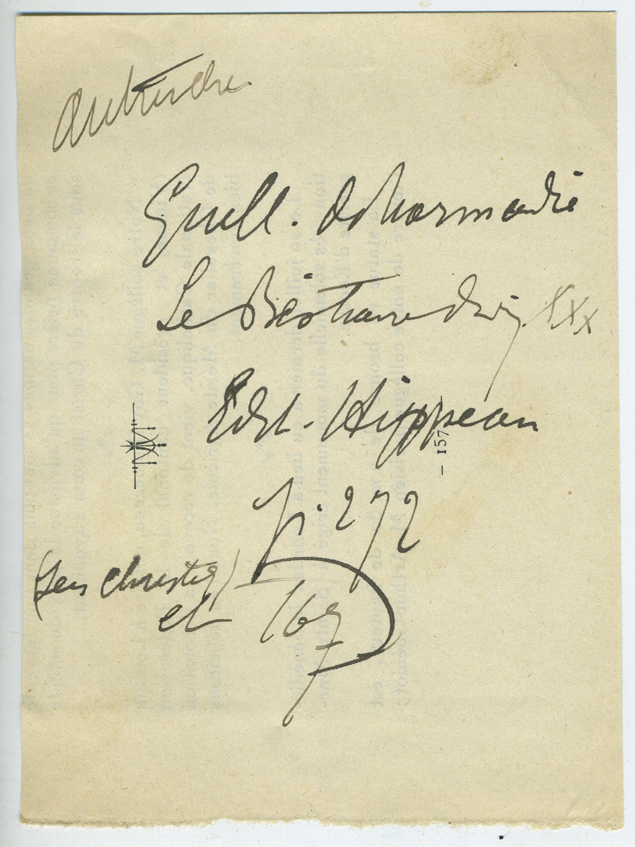 Autruche
Guill. de Normandie
Le Bestiaire divin XXX
Edit. Hippeau
p. 272
(Jes christ)
et 169
- 157